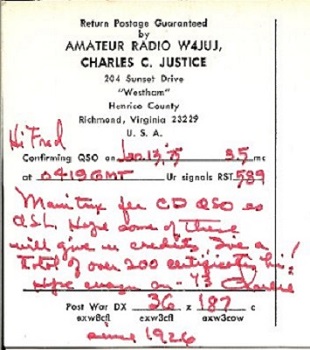 Return Postage Guaranteed
by
AMATEUR RADIO W4JUJ,
CHARLES C. JUSTICE
204 Sunset Drive
"Westham"
Henrico County
Richmond, Virginia 23229
U. S. A.
Hi Fred
Confirming QSO on Jan. 13, 75 3.5 mc
at 0419 GMT Ur signals RST 589
Mani tnx for CD QSO es
QSL. Hope some of these
will give u credits, I've a
total of over 200 certificates hi!
Hpe cuagn on - 73 Charlie
Post War DX 36 x 187 c
exw8cfl exw3cfl axw3cow
since 1926